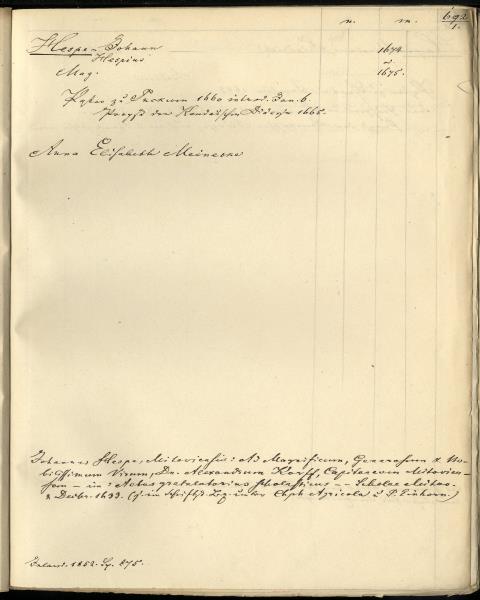 n. m. 692
1.
Hespe, Johann 1674
Hespius u
Mag. 1675.
Pastor zu Tuckum 1660 introd. Jan. 6.
Propst der Kandauschen Diöcese 1665.
Anna Elisabeth Meinecke
Johannes Hespe, Mitoviensis: Ad Magnificum, Generosum & No-
bilissimum Virum, Dn. Alexandrum Korff, Capitaneum Mitovien-
sem – in: Actus gratulatorius scholasticus – Scholae Mitov.
Decbr. 1633. (s. im Schriftst. Lex. unter Chph Agricola u P. Einhorn.)
Inland. 1852. Sp. 875.